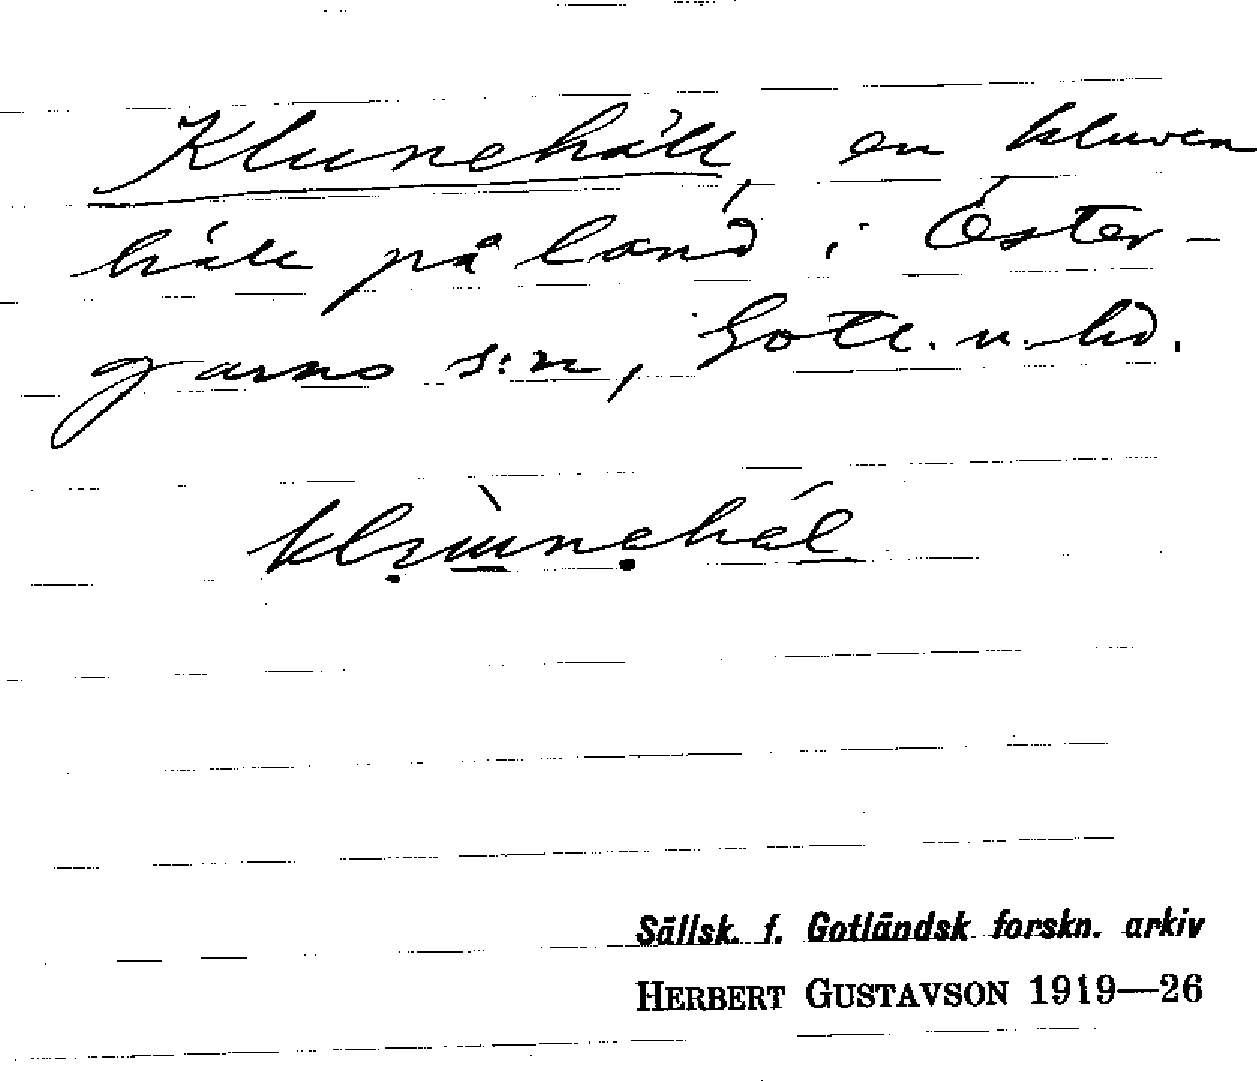 Klunehäll, en kluven
häll på land i Öster-
garns s:n, Gotl. n. hd.
Sällsk. f. Gotländsk forskn. arkiv
HERBERT GUSTAVSON 1919—26